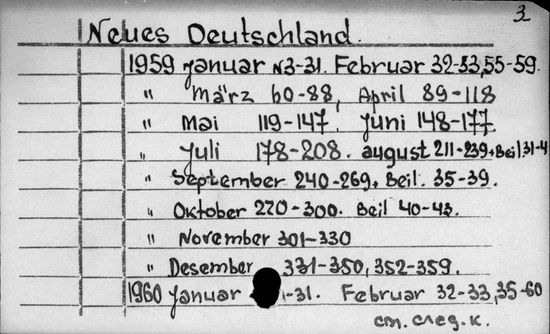 3
Neues Deutschland.
1959 Januar N3-31. Februar 32-53,55-59.
" März 60-88, April 89-118
" Mai 119-147. Juni 148-177.
" Juli 178-208. august 211-239+Beil 31-4
" September 240-269+ Beil. 35-39.
" Oktober 270-300. Beil 40-43.
" November 301-330
" Desember 331-350, 352-359.
1960 Januar -31. Februar 32-33,35-60
см. след. к.